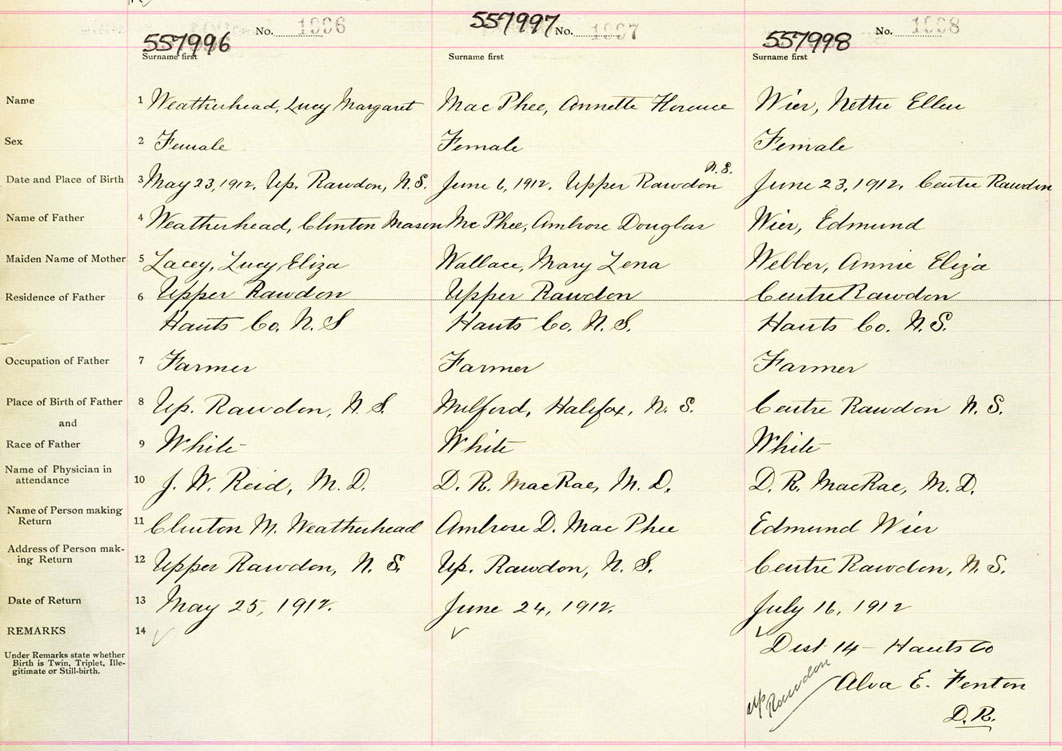 557996 No. 1996 557997 No. 1997 557998 No. 1998
Surname first Surname first Surname first
Name 1 Weatherhead, Lucy Margaret Mac Phee, Annette Florence Wier, Nettie Ellen
Sex 2 Female Female Female
Date and Place of Birth 3 May 23, 1912. Up. Rawdon, N.S. June 6, 1912. Upper Rawdon N.S. June 23, 1912. Centre Rawdon
Name of Father 4 Weatherhead, Clinton Mason Mc Phee, Ambrose Douglas Wier, Edmund
Maiden Name of Mother 5 Lacey, Lucy Eliza Wallace, Mary Lena Webber, Annie Eliza
Residence of Father 6 Upper Rawdon Upper Rawdon Centre Rawdon
Hants Co. N.S Hants Co. N.S. Hants Co. N.S.
Occupation of Father 7 Farmer Farmer Farmer
Place of Birth of Father 8 Up. Rawdon, N.S. Milford, Halifax, N.S. Centre Rawdon N.S.
and
Race of Father 9 White White White
Name of Physician in
attendance 10 J. W. Reid, M.D. D. R. MacRae, M.D. D. R. MacRae, M.D.
Name of Person making
Return 11 Clinton M. Weatherhead Ambrose D. Mac Phee Edmund Wier
Address of Person mak-
ing Return 12 Upper Rawdon, N.S. Up. Rawdon, N.S. Centre Rawdon, N.S.
Date of Return 13 May 25, 1912. June 24, 1912. July 16, 1912
REMARKS 14
Under Remarks state whether
Birth is Twin, Triplet, Ille-
gitimate or Still-birth.
Dist 14 - Hants Co
Up Rawdon
Alva E. Fenton
D.R.